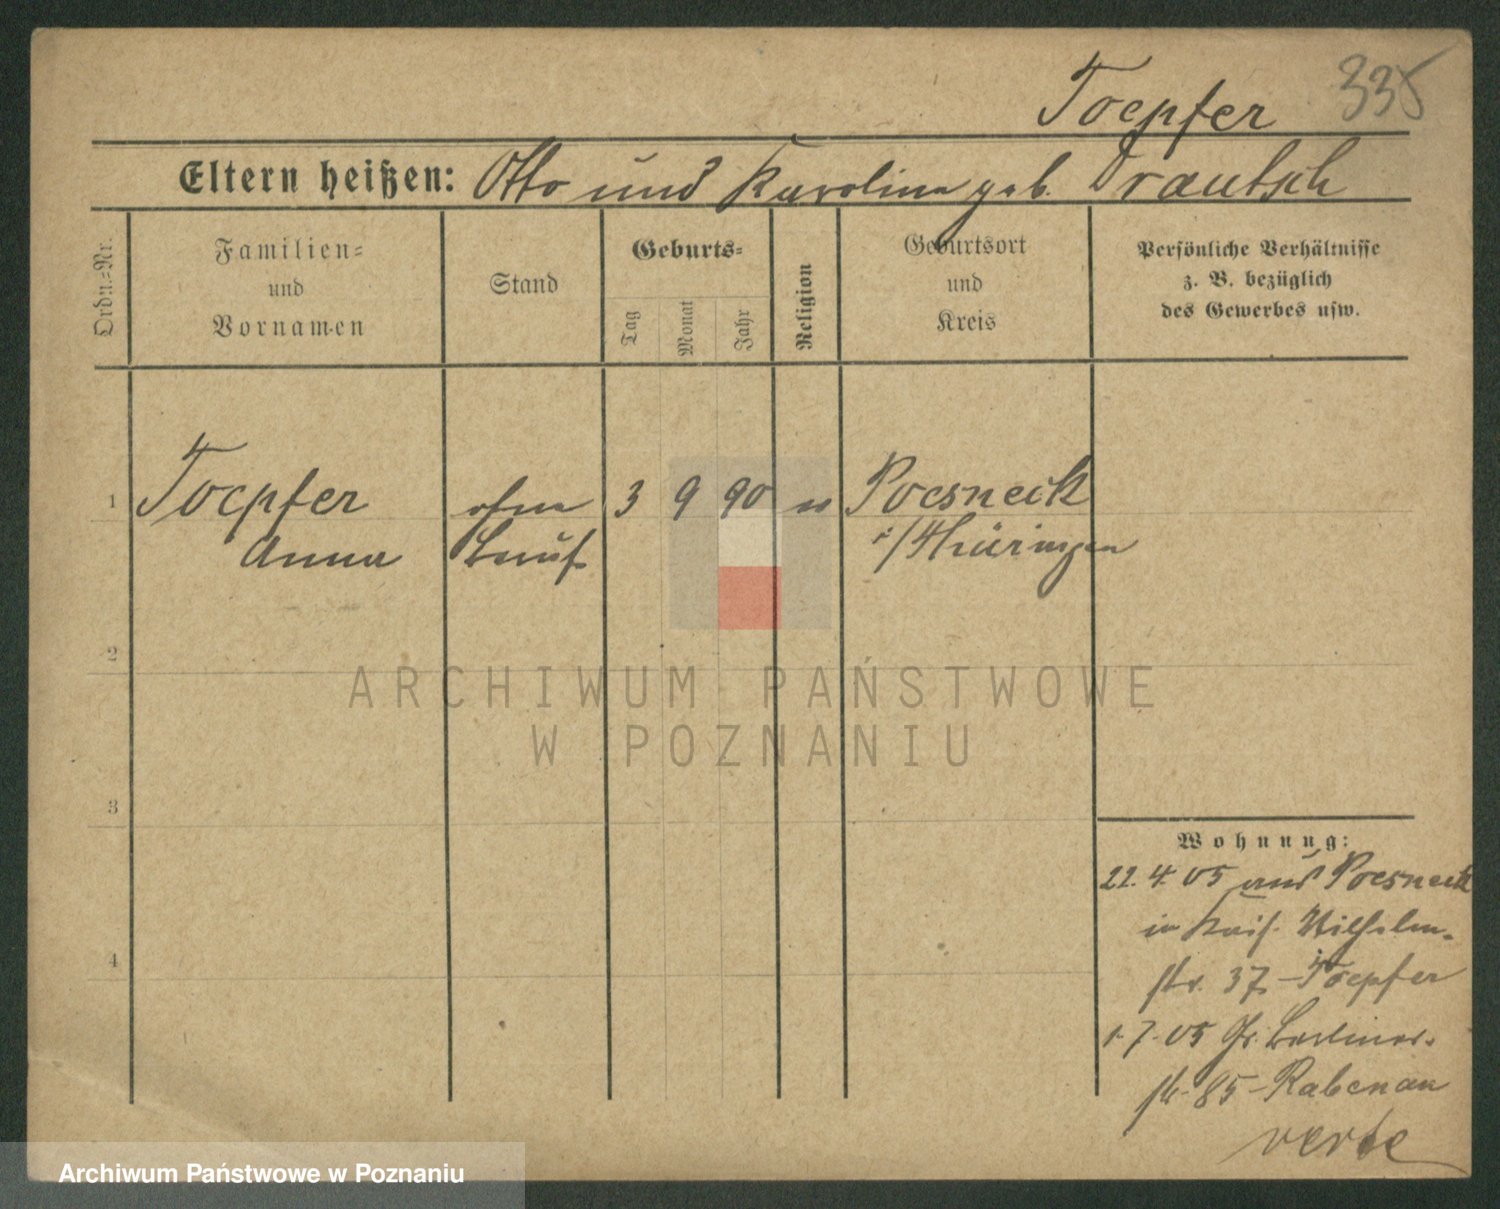 335
Toepfer
Eltern heißen: Otto und Karoline geb. Drautsch
Ordn.-Nr.
Familien-
und
Vornamen
Stand
Geburts-
Tag
Monat
Jahr
Religion
Geburtsort
und
Kreis
Persönliche Verhältnisse
z. B. bezüglich
des Gewerbes usw.
1 Toepfer ohne 3 9 90 Poesneck
Anna Beruf i/Thüringen
2
3
4
Wohnung:
22. 4. 05 aus Poesneck
in Kais. Wilhelm-
str. 37 - Toepfer
1. 7. 05 Gr. Berliner-
str. 85 - Rabenau
verte
ARCHIWUM PAŃSTWOWE
W POZNANIU
Archiwum Państwowe w Poznaniu